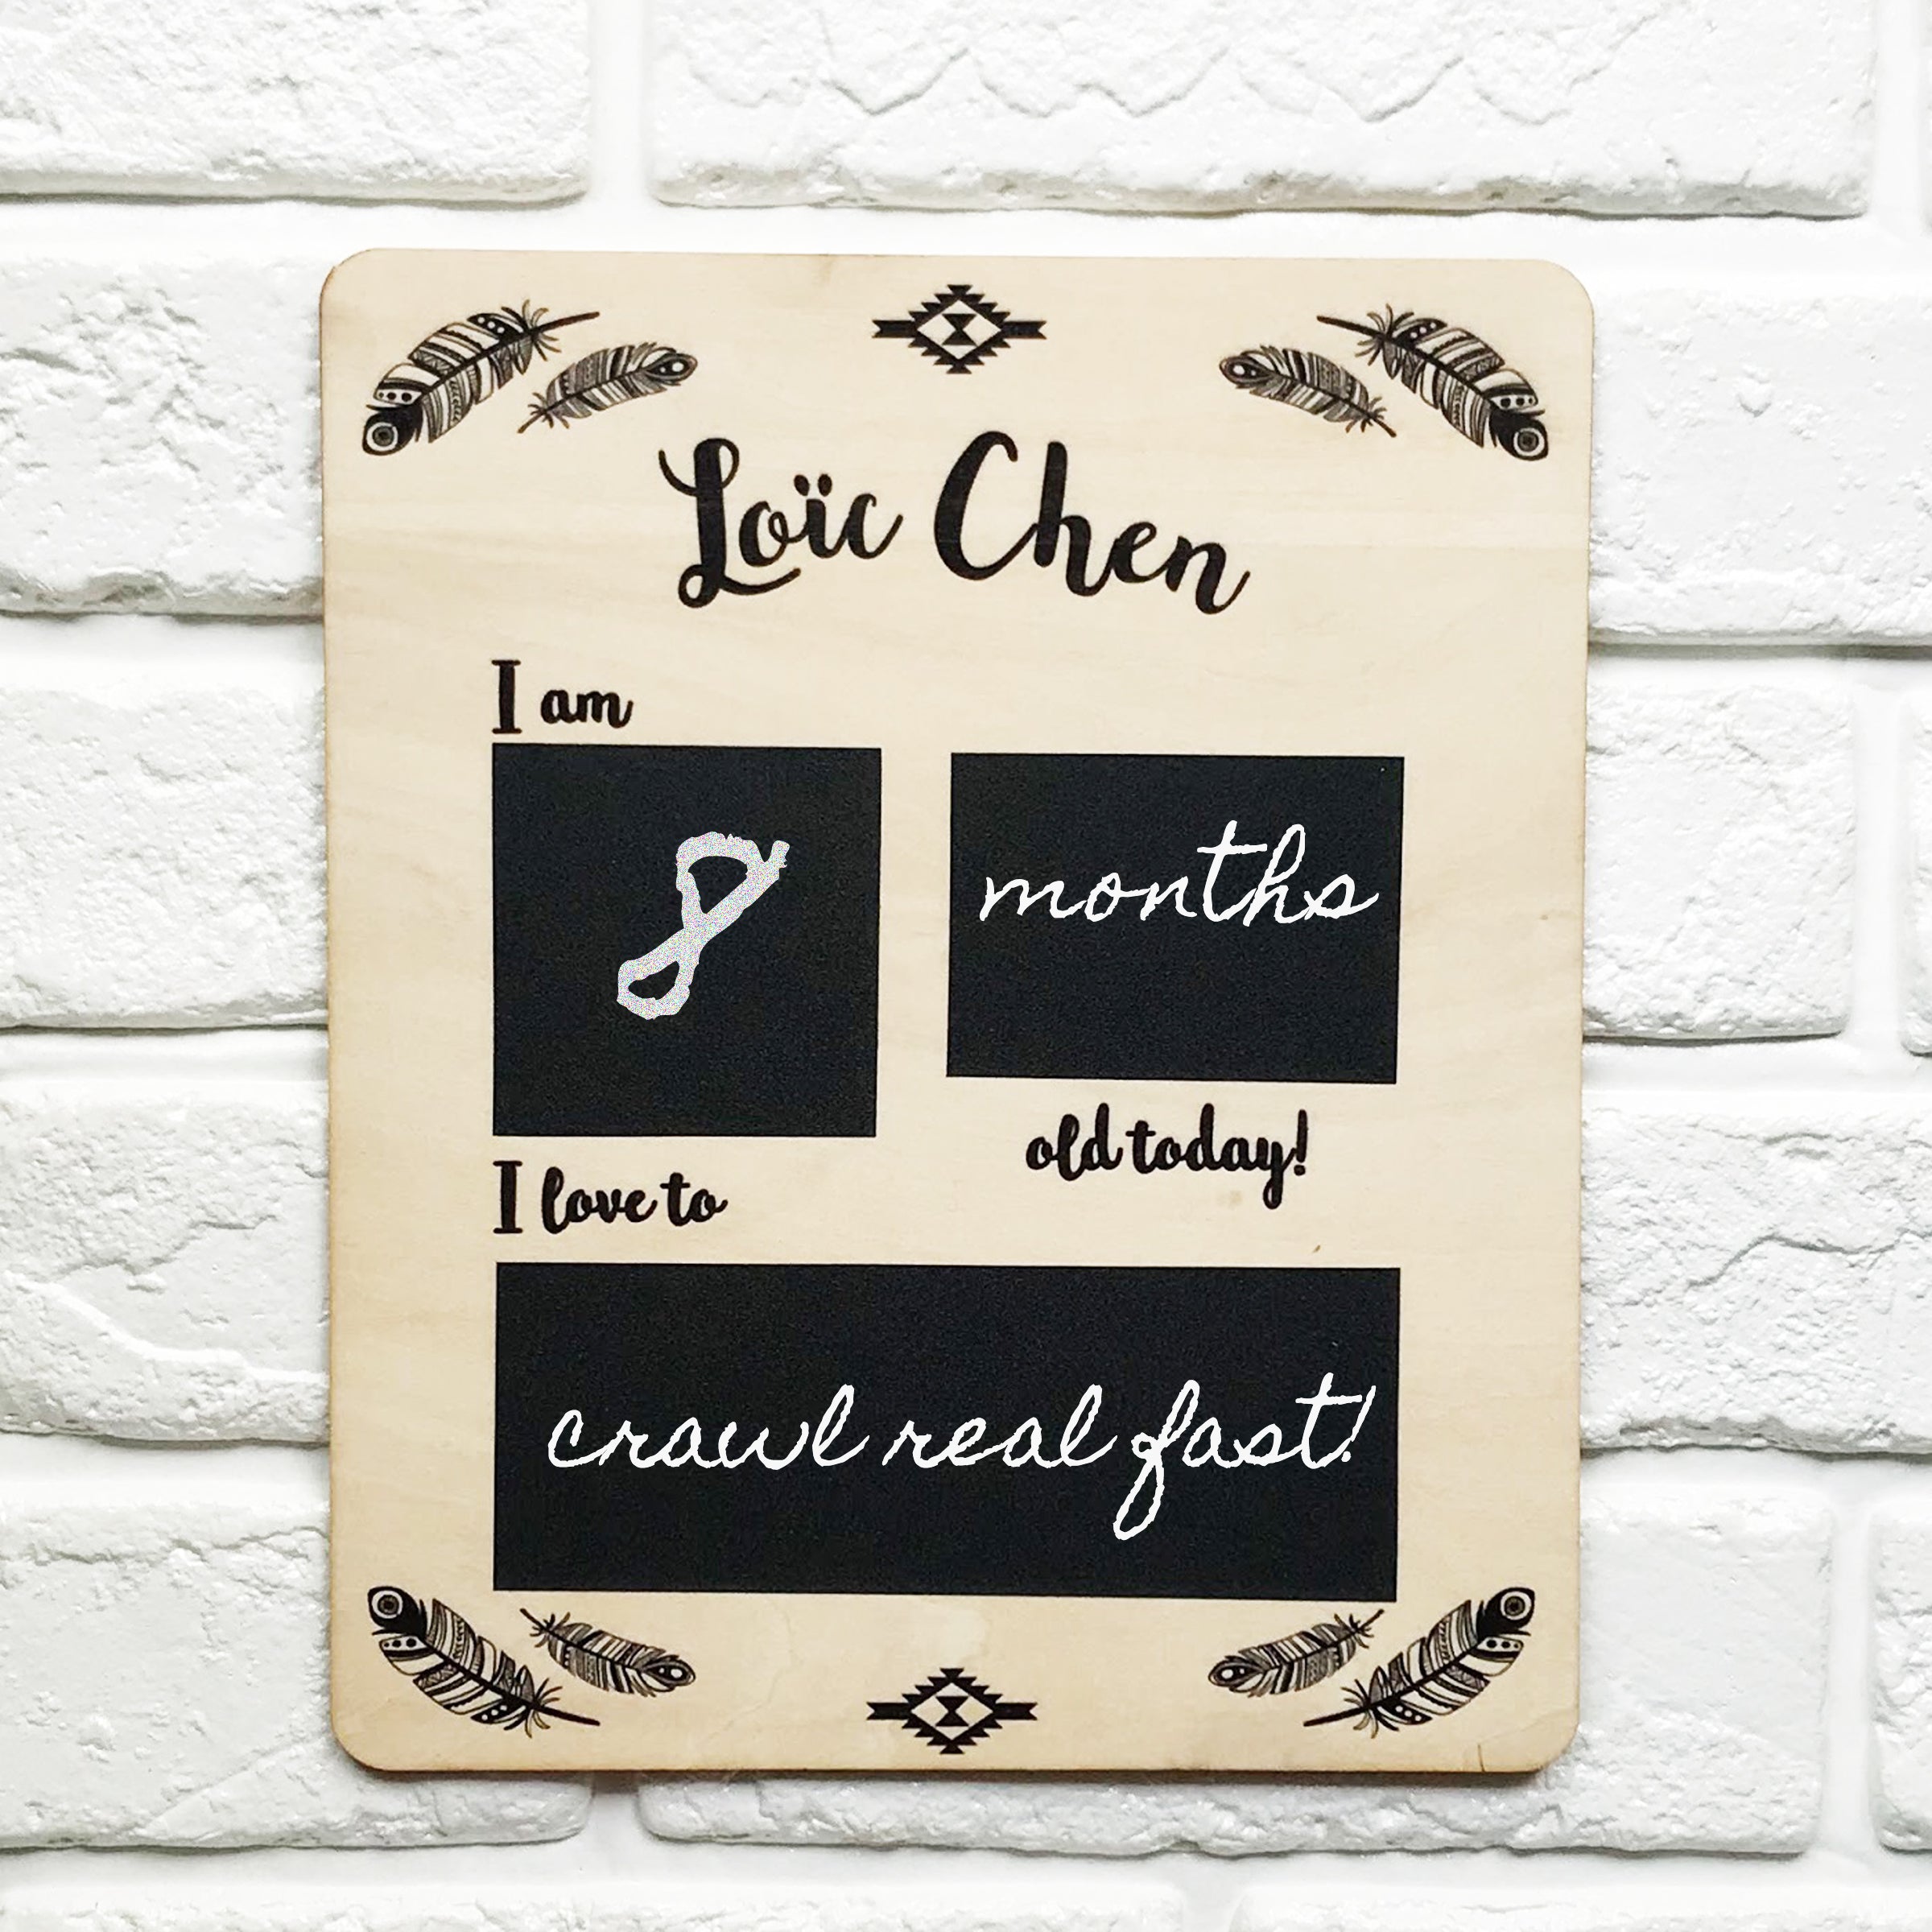 Loïc Chen
I am
8 months
old today!
I love to
crawl real fast!